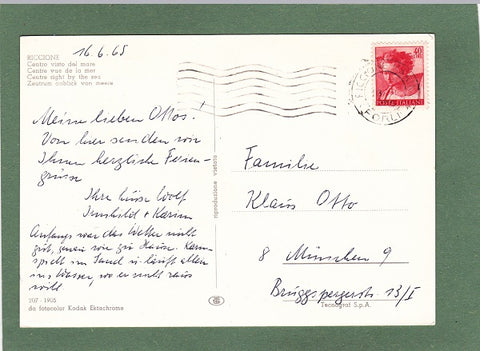 16.6.65
RICCIONE
Centro visto dal mare
Centre vue de la mer
Centre right by the sea
Zentrum anblick von meere
Meine lieben Ottos!
Von hier senden wir
Ihnen herzliche Ferien-
grüsse
Ihre Luise Wolf
Irmhild + Karin
Anfangs war das Wetter nicht
gut, genau wie zu Hause. Karin
spielt im Sand u. läuft allein
ins Wasser, wo er nicht raus
will
207 - 1905
da fotocolor Kodak Ektachrome
riproduzione vietata
40
POSTE ITALIANE
RICCIONE
FORLI
Familie
Klaus Otto
8 München 9
Brüggspergerstr. 13/I
Tecnograf S.p.A.